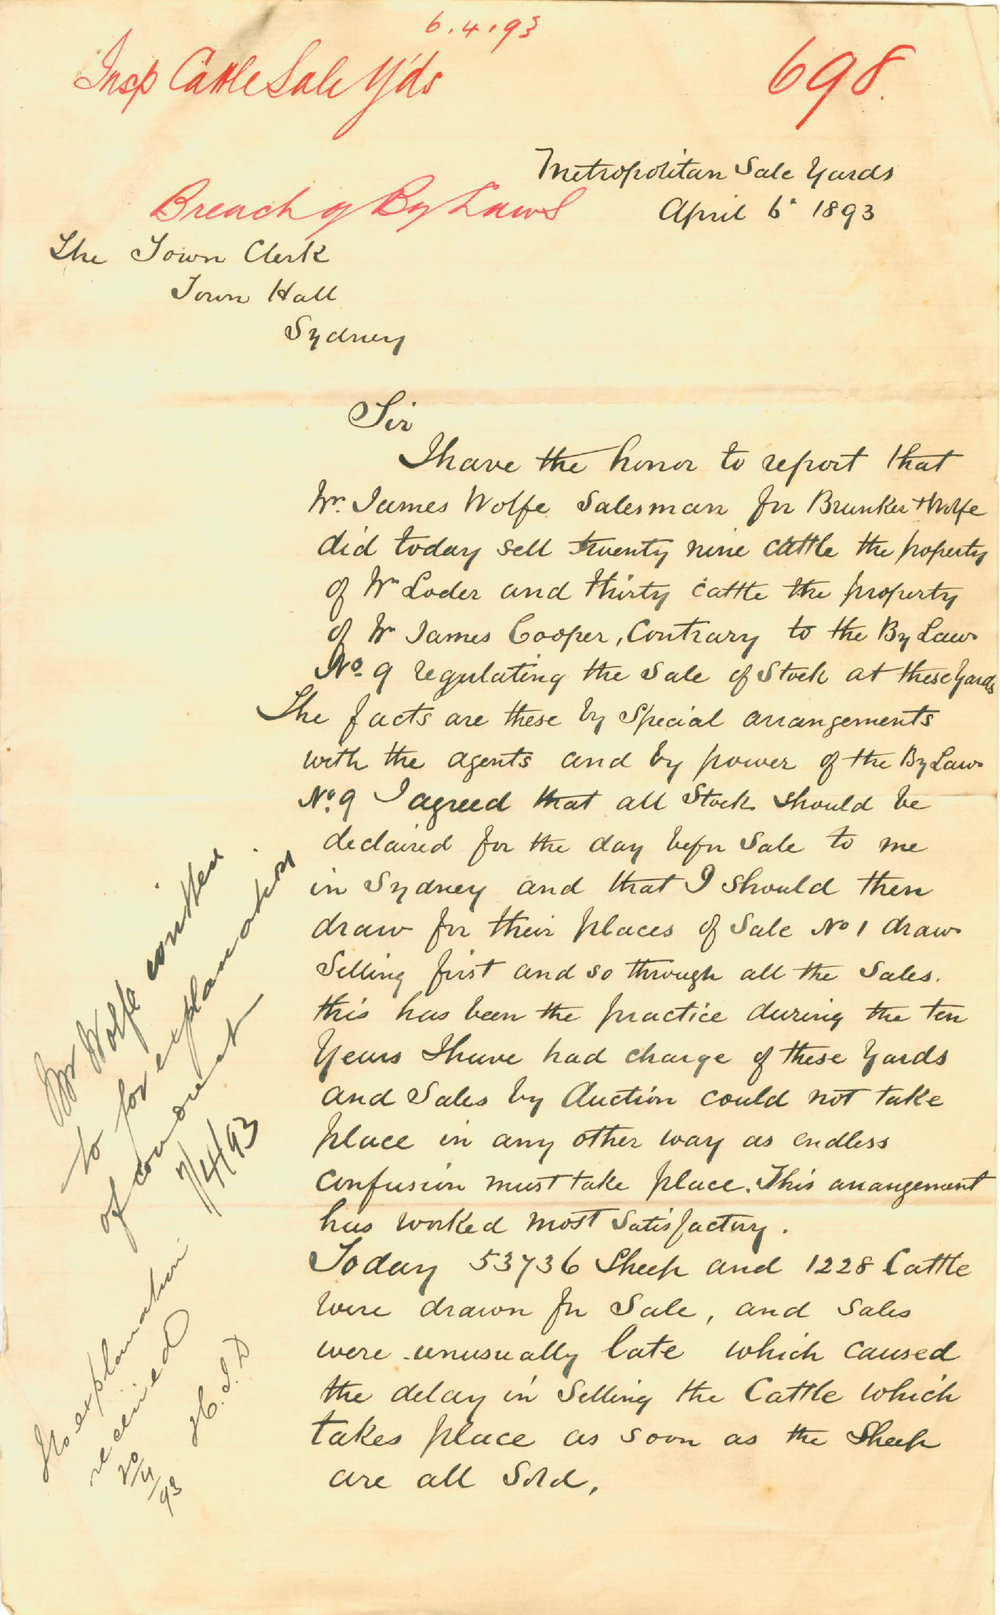 6.4.93
Insp Cattle Sale Y'ds
698.
Metropolitan Sale Yards
April 6th 1893
Breach of By Laws
The Town Clerk
Town Hall
Sydney
Sir
I have the honor to report that
Mr. James Wolfe Salesman for Brunker & Wolfe
did today sell twenty nine cattle the property
of Mr Loder and thirty cattle the property
of Mr James Cooper, Contrary to the By Laws
No. 9 regulating the Sale of Stock at these Yards
The facts are these by Special arrangements
with the agents and by power of the By Laws
No. 9 I agreed that all Stock should be
declaired for the day befor Sale to me
in Sydney and that I should then
draw for their places of Sale No 1 draw
Selling first and so through all the Sales.
this has been the practice during the ten
Years I have had charge of these Yards
and Sales by Auction could not take
place in any other way as endless
Confusion must take place. This arrangement
has worked most Satisfactory.
Today 53736 Sheep and 1228 Cattle
were drawn for Sale, and Sales
were unusually late which caused
the delay in Selling the Cattle which
takes place as soon as the Sheep
are all Sold.
Mr Wolfe written
to for explanation
of conduct
7/4/93
No explanation
received
20/4/93
H.S.D